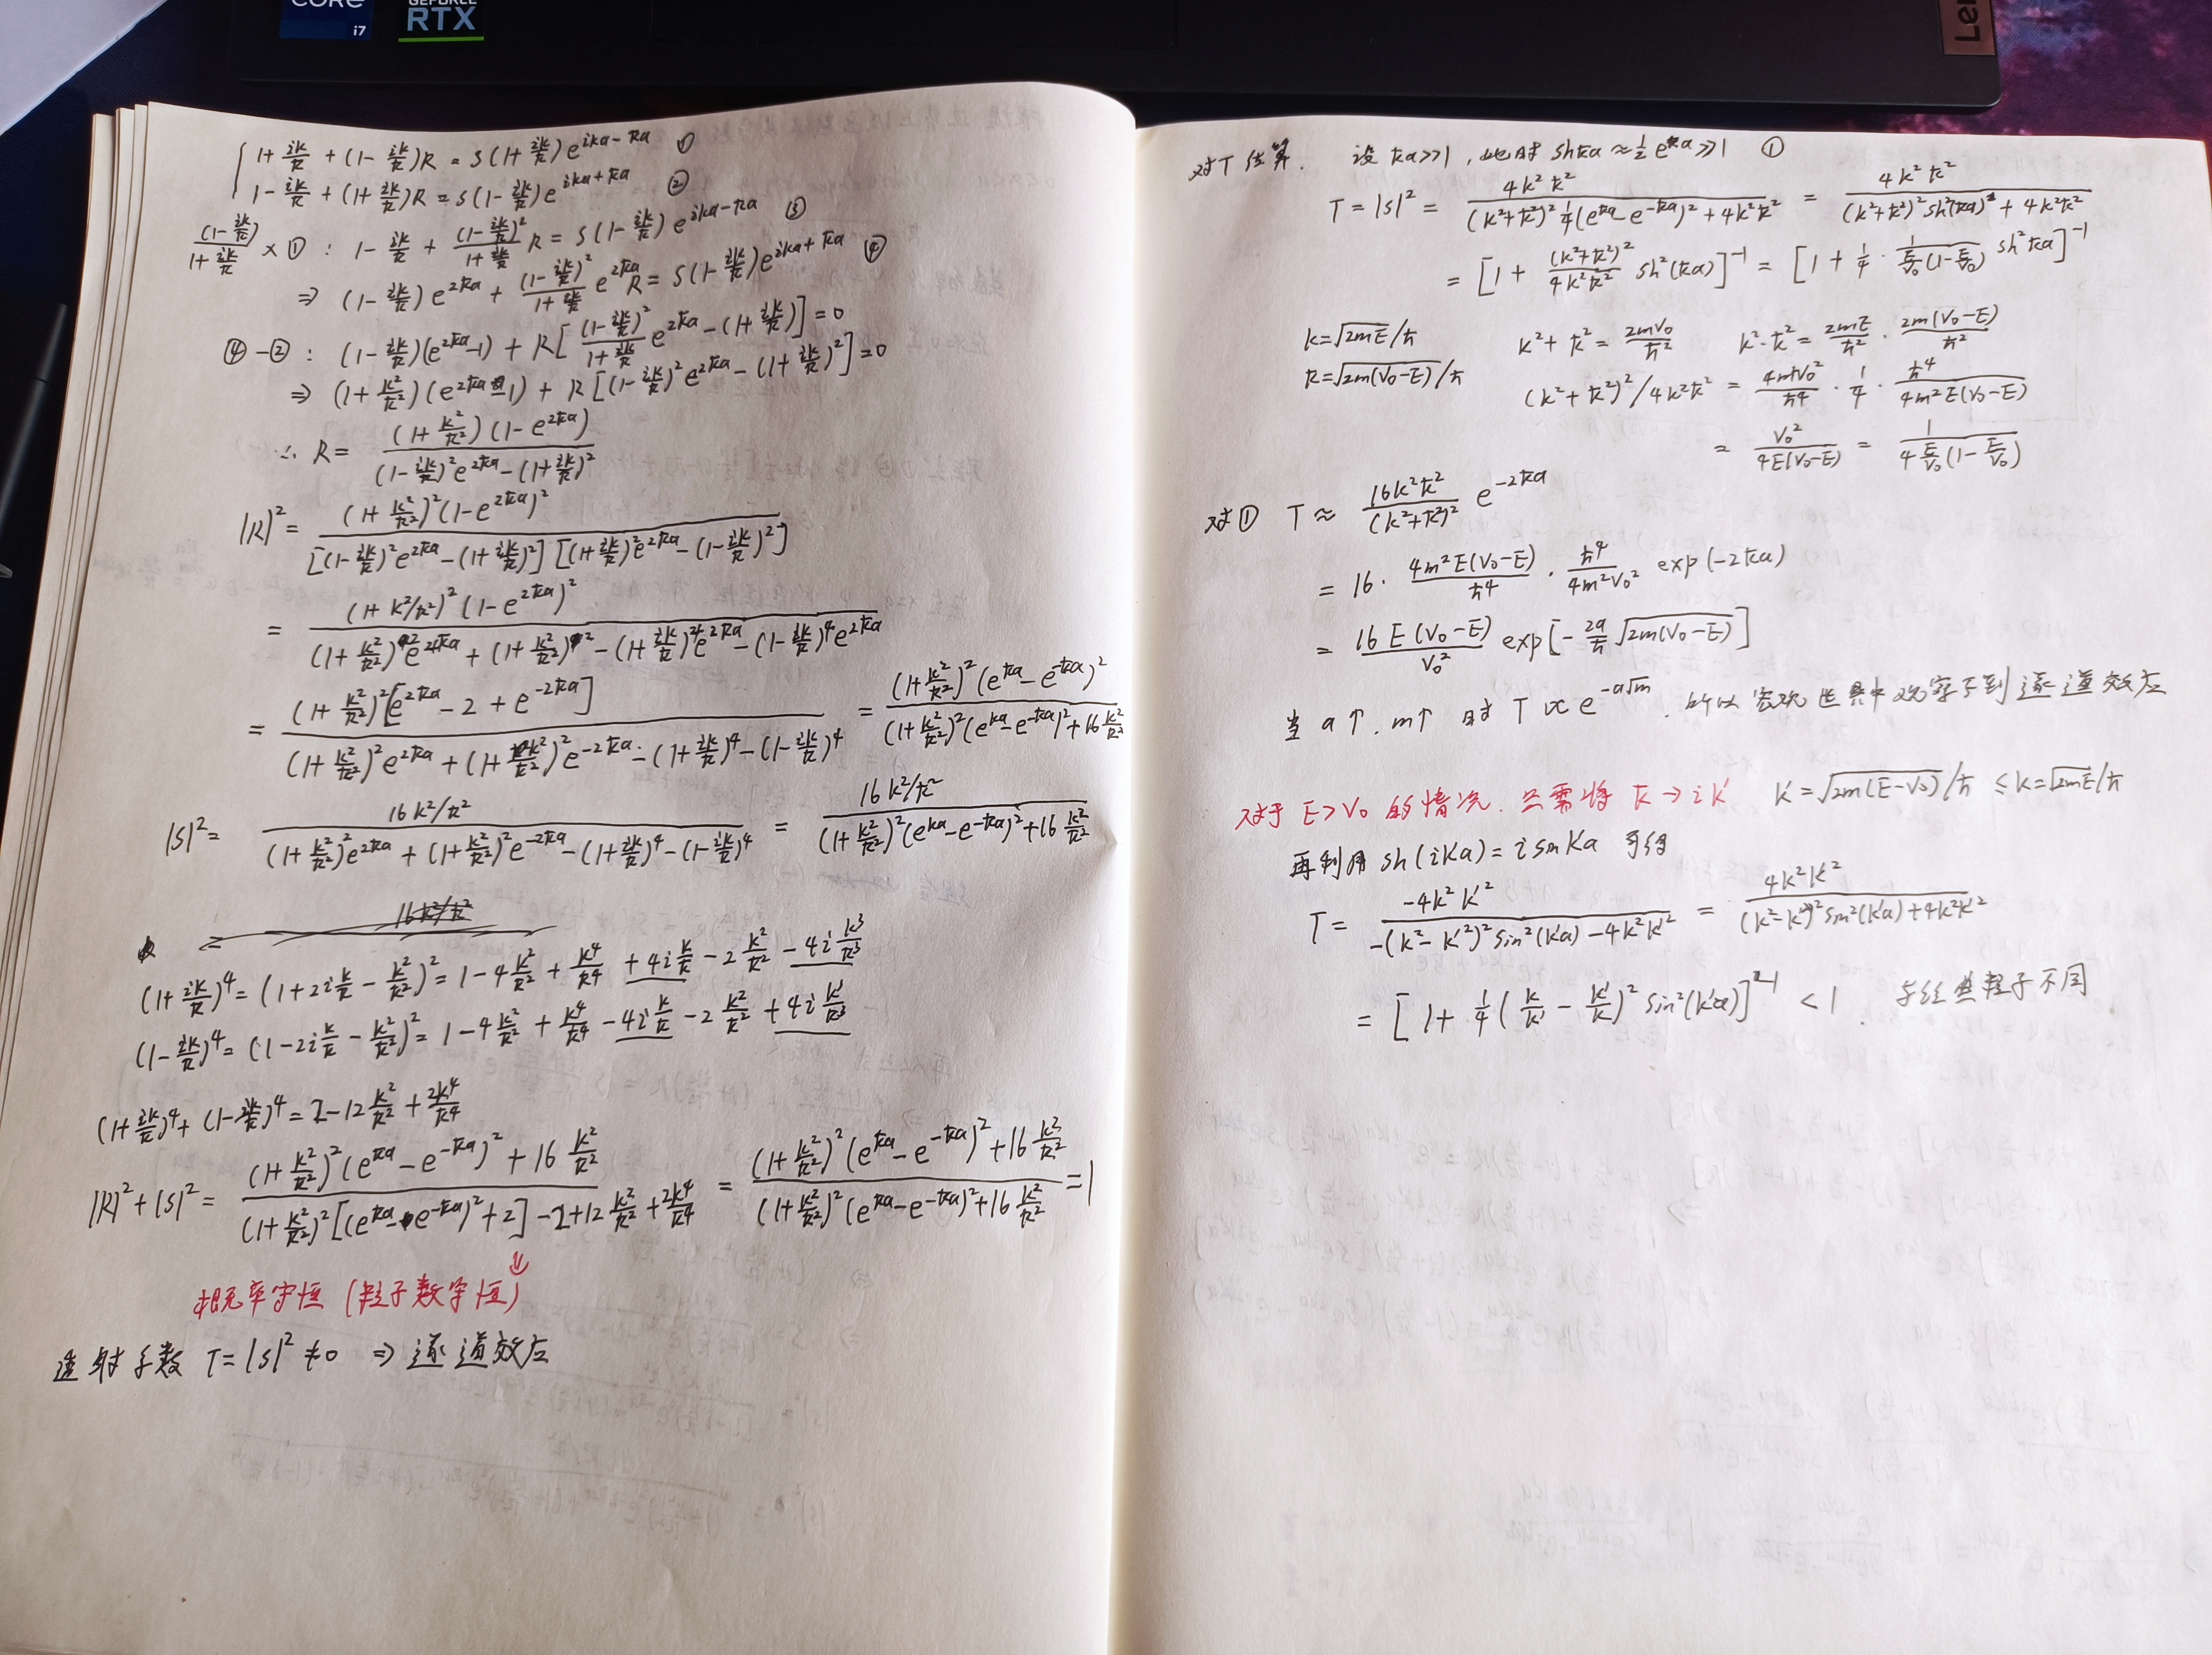 CORE
i7
GEFORCE
RTX
Len
{ 1+ik/ꝁ + (1-ik/ꝁ)R = S(1+ik/ꝁ)e^{ika-ꝁa} ①
1-ik/ꝁ + (1+ik/ꝁ)R = S(1-ik/ꝁ)e^{ika+ꝁa} ②
(1-ik/ꝁ)/(1+ik/ꝁ) × ① : 1-ik/ꝁ + (1-ik/ꝁ)²/(1+ik/ꝁ) R = S(1-ik/ꝁ)e^{ika-ꝁa} ③
⇒ (1-ik/ꝁ)e^{2ꝁa} + (1-ik/ꝁ)²/(1+ik/ꝁ) e^{2ꝁa}R = S(1-ik/ꝁ)e^{ika+ꝁa} ④
④-② : (1-ik/ꝁ)(e^{2ꝁa}-1) + R[(1-ik/ꝁ)²/(1+ik/ꝁ) e^{2ꝁa} - (1+ik/ꝁ)] = 0
⇒ (1+k²/ꝁ²)(e^{2ꝁa}-1) + R[(1-ik/ꝁ)²e^{2ꝁa} - (1+ik/ꝁ)²] = 0
∴ R = (1+k²/ꝁ²)(1-e^{2ꝁa}) / ((1-ik/ꝁ)²e^{2ꝁa} - (1+ik/ꝁ)²)
|R|² = (1+k²/ꝁ²)²(1-e^{2ꝁa})² / ([(1-ik/ꝁ)²e^{2ꝁa} - (1+ik/ꝁ)²][(1+ik/ꝁ)²e^{2ꝁa} - (1-ik/ꝁ)²])
= (1+k²/ꝁ²)²(1-e^{2ꝁa})² / ((1+k²/ꝁ²)²e^{4ꝁa} + (1+k²/ꝁ²)² - (1+ik/ꝁ)⁴e^{2ꝁa} - (1-ik/ꝁ)⁴e^{2ꝁa})
= (1+k²/ꝁ²)²[e^{2ꝁa} - 2 + e^{-2ꝁa}] / ((1+k²/ꝁ²)²e^{2ꝁa} + (1+k²/ꝁ²)²e^{-2ꝁa} - (1+ik/ꝁ)⁴ - (1-ik/ꝁ)⁴) = (1+k²/ꝁ²)²(e^{ꝁa} - e^{-ꝁa})² / ((1+k²/ꝁ²)²(e^{ꝁa} - e^{-ꝁa})² + 16k²/ꝁ²)
|S|² = 16k²/ꝁ² / ((1+k²/ꝁ²)²e^{2ꝁa} + (1+k²/ꝁ²)²e^{-2ꝁa} - (1+ik/ꝁ)⁴ - (1-ik/ꝁ)⁴) = 16k²/ꝁ² / ((1+k²/ꝁ²)²(e^{ꝁa} - e^{-ꝁa})² + 16k²/ꝁ²)
16k²/ꝁ²
(1+ik/ꝁ)⁴ = (1+2ik/ꝁ - k²/ꝁ²)² = 1 - 4k²/ꝁ² + k⁴/ꝁ⁴ + 4ik/ꝁ - 2k²/ꝁ² - 4ik³/ꝁ³
(1-ik/ꝁ)⁴ = (1-2ik/ꝁ - k²/ꝁ²)² = 1 - 4k²/ꝁ² + k⁴/ꝁ⁴ - 4ik/ꝁ - 2k²/ꝁ² + 4ik³/ꝁ³
(1+ik/ꝁ)⁴ + (1-ik/ꝁ)⁴ = 2 - 12k²/ꝁ² + 2k⁴/ꝁ⁴
|R|² + |S|² = ((1+k²/ꝁ²)²(e^{ꝁa} - e^{-ꝁa})² + 16k²/ꝁ²) / ((1+k²/ꝁ²)²[(e^{ꝁa} - e^{-ꝁa})² + 2] - 2 + 12k²/ꝁ² + 2k⁴/ꝁ⁴) = ((1+k²/ꝁ²)²(e^{ꝁa} - e^{-ꝁa})² + 16k²/ꝁ²) / ((1+k²/ꝁ²)²(e^{ꝁa} - e^{-ꝁa})² + 16k²/ꝁ²) = 1
概率守恒 (粒子数守恒)
透射系数 T = |S|² ≠ 0 ⇒ 隧道效应
对T估算. 设 ꝁa>>1, 此时 shꝁa ≈ ½e^{ꝁa} >> 1 ①
T = |S|² = 4k²ꝁ² / ((k²+ꝁ²)² ¼(e^{ꝁa} - e^{-ꝁa})² + 4k²ꝁ²) = 4k²ꝁ² / ((k²+ꝁ²)² sh²(ꝁa) + 4k²ꝁ²)
= [1 + (k²+ꝁ²)²/4k²ꝁ² sh²(ꝁa)]^{-1} = [1 + ¼ · 1/(E/V₀(1-E/V₀)) sh²ꝁa]^{-1}
k = √2mE/ħ k²+ꝁ² = 2mV₀/ħ² k²·ꝁ² = 2mE/ħ² · 2m(V₀-E)/ħ²
ꝁ = √2m(V₀-E)/ħ (k²+ꝁ²)²/4k²ꝁ² = 4m²V₀²/ħ⁴ · ¼ · ħ⁴/4m²E(V₀-E)
= V₀²/4E(V₀-E) = 1/(4 E/V₀(1-E/V₀))
对① T ≈ 16k²ꝁ²/(k²+ꝁ²)² e^{-2ꝁa}
= 16 · 4m²E(V₀-E)/ħ⁴ · ħ⁴/4m²V₀² exp(-2ꝁa)
= 16E(V₀-E)/V₀² exp[-2a/ħ √2m(V₀-E)]
当 a↑. m↑ 时 T ∝ e^{-a√m}. 所以宏观世界中观察不到隧道效应
对于 E>V₀ 的情况. 只需将 ꝁ → ik' k' = √2m(E-V₀)/ħ ≤ k = √2mE/ħ
再利用 sh(iKa) = i sinKa 可得
T = -4k²k'² / (-(k²-k'²)² sin²(k'a) - 4k²k'²) = 4k²k'² / ((k²-k'²)² sin²(k'a) + 4k²k'²)
= [1 + ¼(k/k' - k'/k)² sin²(k'a)]^{-1} < 1. 与经典粒子不同